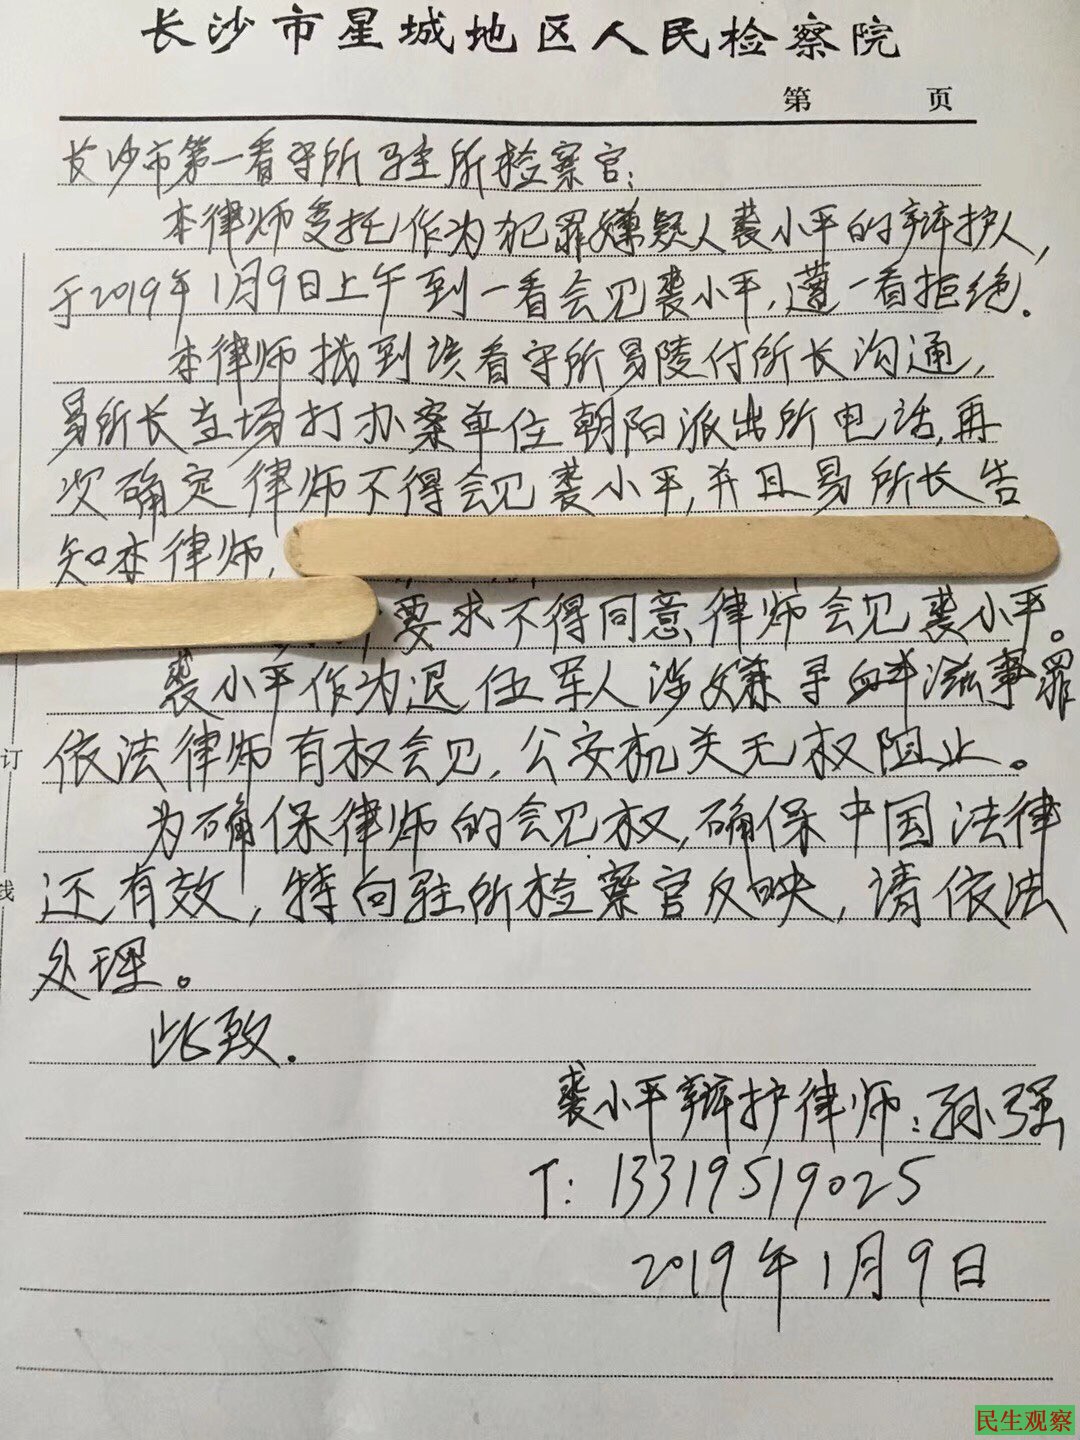 长沙市星城地区人民检察院
第 页
长沙市第一看守所驻所检察官:
本律师受托作为犯罪嫌疑人裘小平的辩护人,
于2019年1月9日上午到一看会见裘小平,遭一看拒绝.
本律师找到该看守所易陵付所长沟通,
易所长立场打办案单位朝阳派出所电话,再
次确定律师不得会见裘小平,并且易所长告
知本律师,
要求不得同意律师会见裘小平。
裘小平作为退伍军人涉嫌寻衅滋事罪
依法律师有权会见,公安机关无权阻止。
为确保律师的会见权,确保中国法律
还有效,特向驻所检察官反映,请依法
处理。
此致.
裘小平辩护律师:孙强
T:13319519025
2019年1月9日
订
线
民生观察